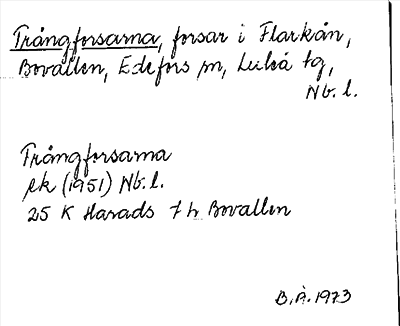 Trångforsarna, forsar i Flarkån,
Bovallen, Edefors sn, Luleå tg,
Nb. l.
Trångforsarna
ek (1951) Nb. l.
25 K Harads 7 h Bovallen
B. Å. 1973